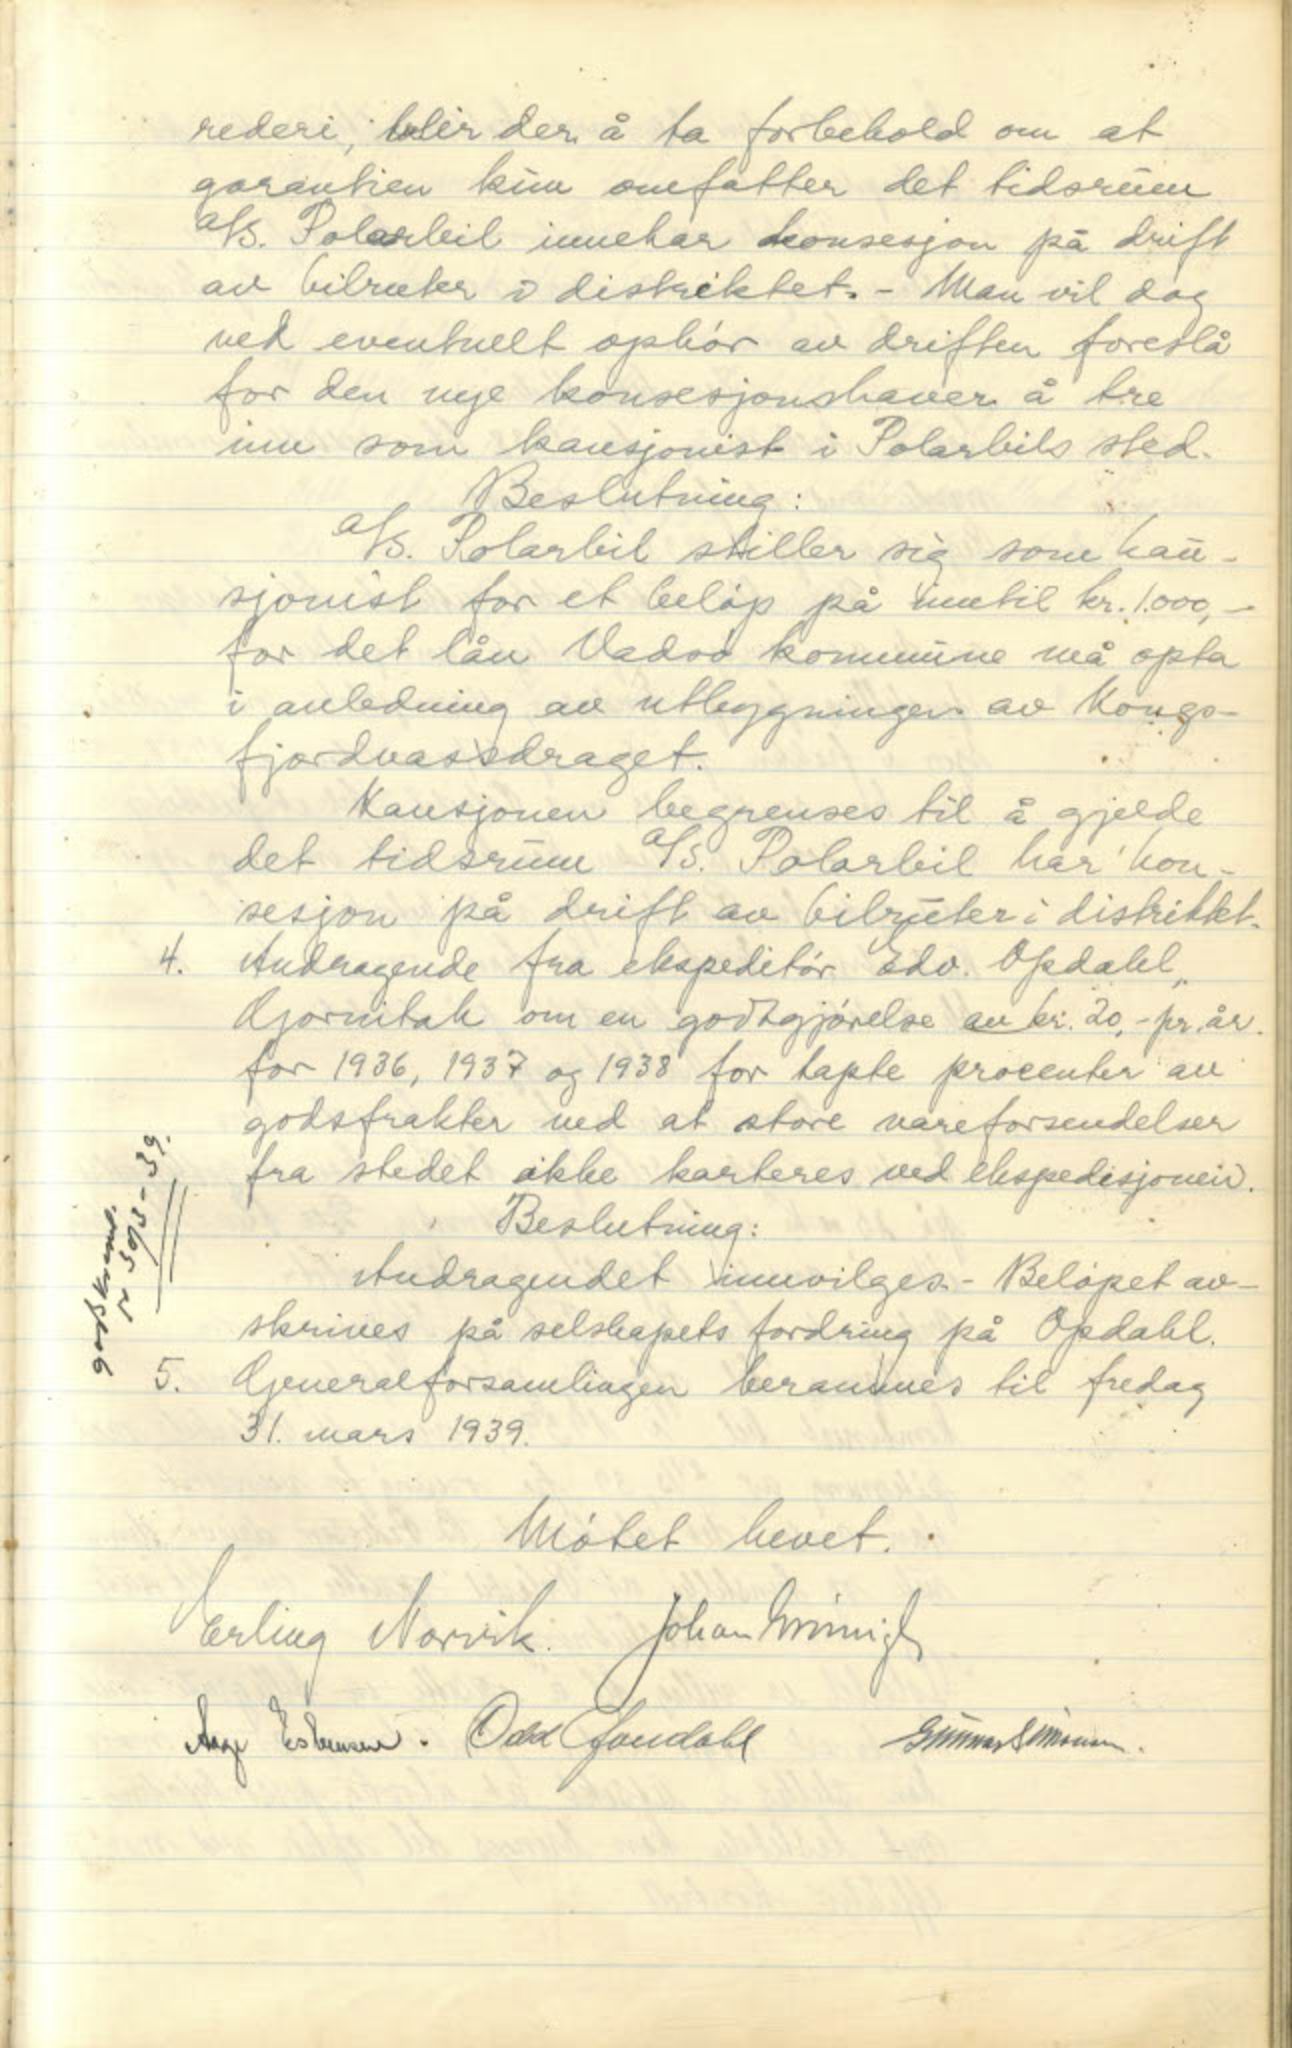 rederi, blir der å ta forbehold om at
garantien kun omfatter det tidsrum
A/S. Polarbil innehar konsesjon på drift
av bilruter i distriktet. - Man vil dog
ved eventuelt ophör av driften foreslå
for den nye konsesjonshaver å tre
inn som kausjonist i Polarbils sted.
Beslutning:
A/S. Polarbil stiller sig som kau-
sjonist for et belöp på inntil kr. 1.000,-
for det lån Vadsö kommune må opta
i anledning av utbyggningen av Kongs-
fjordvassdraget.
Kausjonen begrenses til å gjelde
det tidsrum A/S. Polarbil har kon-
sesjon på drift av bilruter i distriktet.
4. Andragende fra ekspeditör Edv. Opdahl,
Gornitak om en godtgjörelse av kr. 20,- pr. år
for 1936, 1937 og 1938 for tapte procenter av
godsfrakter ved at store vareforsendelser
fra stedet ikke karteres ved ekspedisjonen.
Beslutning:
Andragendet innvilges. - Belöpet av-
skrives på selskapets fordring på Opdahl.
5. Generalforsamlingen berammes til fredag
31. mars 1939.
Mötet hevet.
Erling Norvik. Johan
Aage Esbensen. Odd Gundahl Gunnar Simonsen.